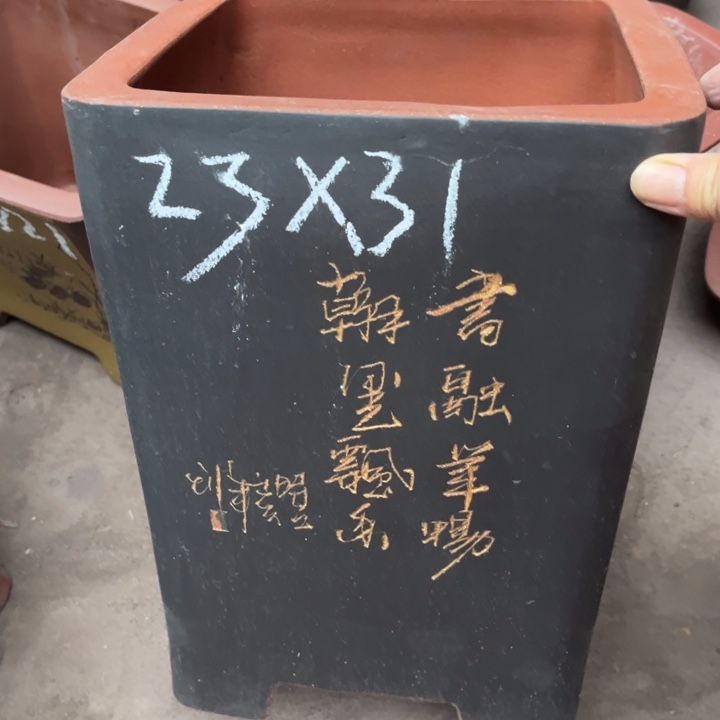 23X31
書融筆暢
翰墨飄香